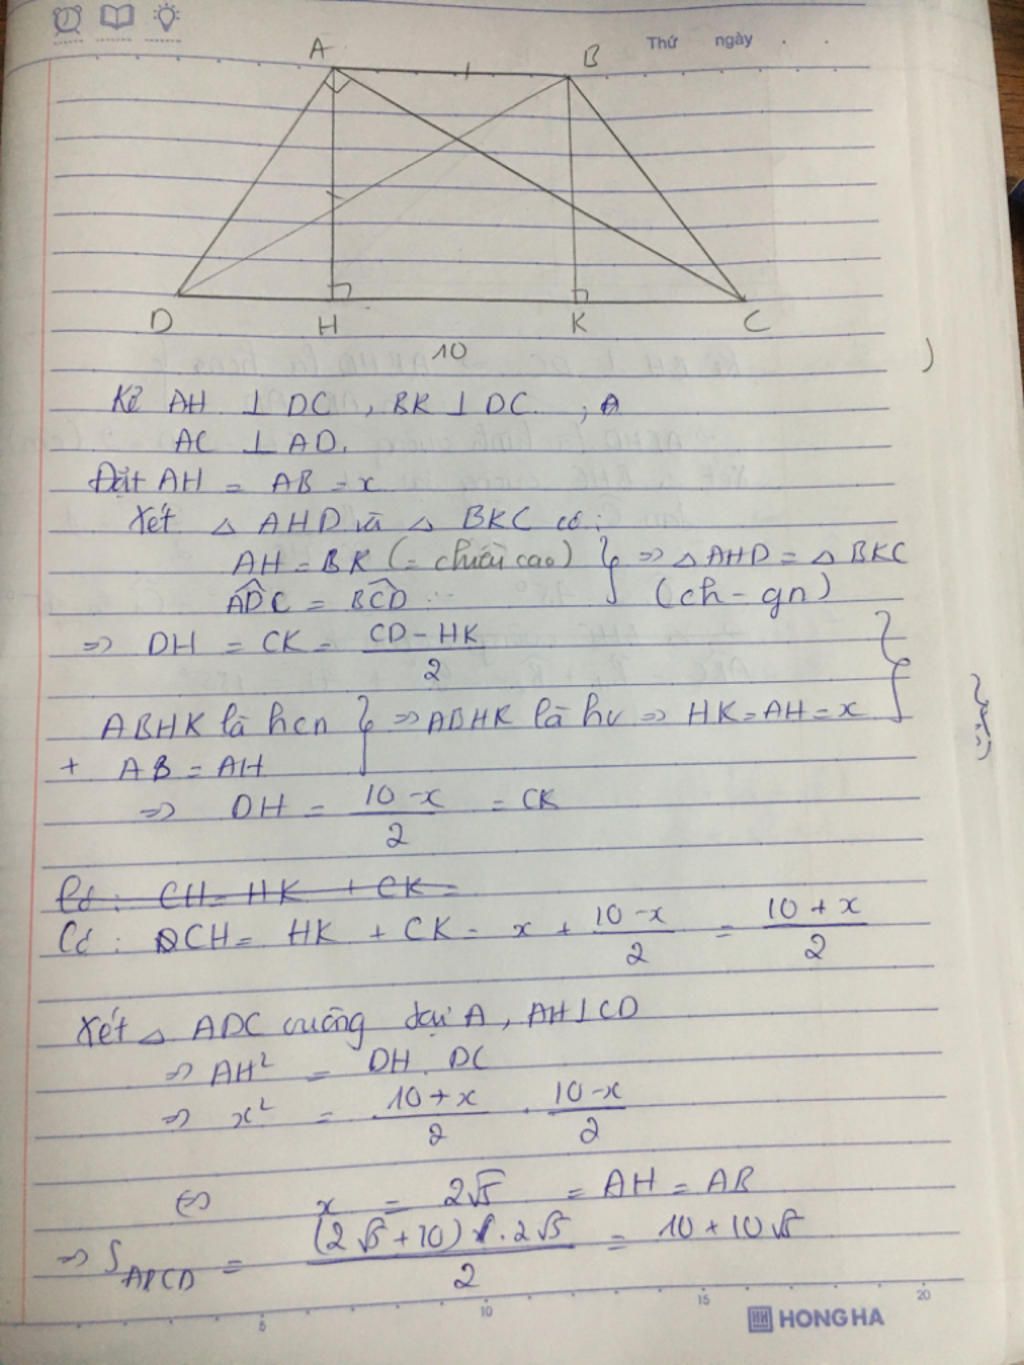 Thứ ngày
A B
D H K C
10
Kẻ AH ⊥ DC, BK ⊥ DC , A
AC ⊥ AD.
Đặt AH = AB = x
Xét △ AHD và △ BKC có:
AH = BK (= chiều cao) } => △AHD = △BKC
ADC = BCD (ch - gn)
=> DH = CK = CD - HK / 2
ABHK là hcn } => ABHK là hv => HK = AH = x
+ AB = AH
=> DH = 10 - x / 2 = CK
Có : CH = HK + CK =
Có : CH = HK + CK = x + 10 - x / 2 = 10 + x / 2
Xét △ ADC vuông tại A, AH ⊥ CD
=> AH² = DH . DC
=> x² = 10 + x / 2 . 10 - x / 2
<=> x = 2√5 = AH = AB
=> S ABCD = (2√5 + 10) . 2√5 / 2 = 10 + 10√5
5 10 15 20
HONG HA